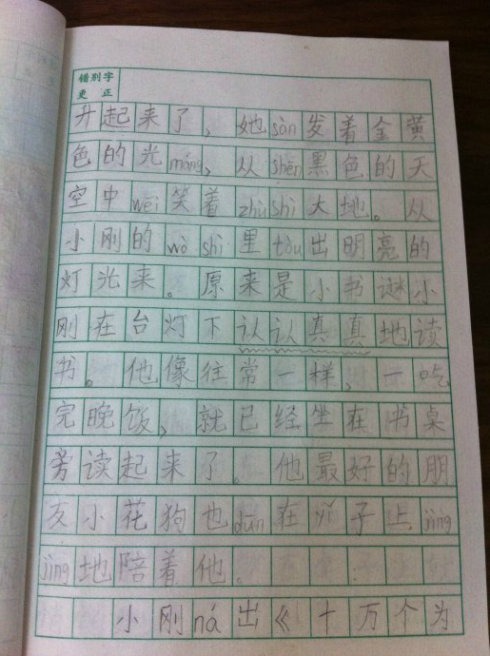 错别字
更正
升起来了，她sàn发着金黄
色的光máng，从shēn黑色的天
空中wēi笑着zhù shì大地。从
小刚的wò shì里tòu出明亮的
灯光来。原来是小书谜小
刚在台灯下认认真真地读
书。他像往常一样，一吃
完晚饭，就已经坐在书桌
旁读起来了。他最好的朋
友小花狗也dūn在yǐ子上jìng
jìng地陪着他。
小刚ná出《十万个为